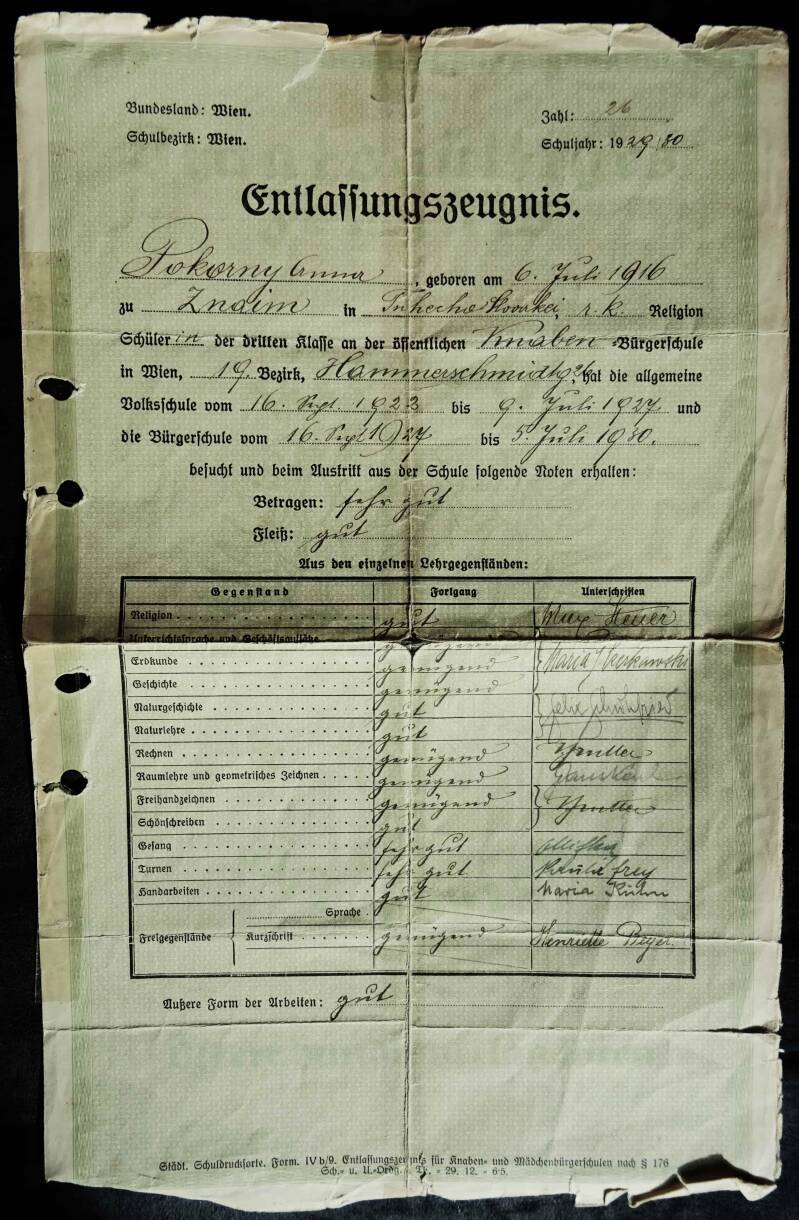 Bundesland: Wien. Zahl: 26
Schulbezirk: Wien. Schuljahr: 1929/30
Entlassungszeugnis.
Pokorny Anna, geboren am 6. Juli 1916
zu Znaim in Tschechoslovakei, r. k. Religion
Schülerin der dritten Klasse an der öffentlichen Knaben-Bürgerschule
in Wien, 19. Bezirk, Hammerschmidtg, hat die allgemeine
Volksschule vom 16. Sept. 1923 bis 9. Juli 1927 und
die Bürgerschule vom 16. Sept 1927 bis 5. Juli 1930.
besucht und beim Austritt aus der Schule folgende Noten erhalten:
Betragen: sehr gut
Fleiß: gut
Aus den einzelnen Lehrgegenständen:
Gegenstand Fortgang Unterschriften
Religion gut
Unterrichtssprache und Geschäftsaufsätze
Erdkunde genügend Maria
Geschichte genügend
Naturgeschichte gut
Naturlehre gut
Rechnen genügend
Raumlehre und geometrisches Zeichnen genügend
Freihandzeichnen genügend
Schönschreiben gut
Gesang sehr gut
Turnen sehr gut
Handarbeiten gut Maria Kuhn
Sprache
Freigegenstände Kurzschrift genügend Henriette
Äußere Form der Arbeiten: gut
Städt. Schuldrucksorte. Form. IV b/9. Entlassungszeugnis für Knaben- und Mädchenbürgerschulen nach § 176
Sch.- u. U.-Ordn. - 29. 12. - 65.